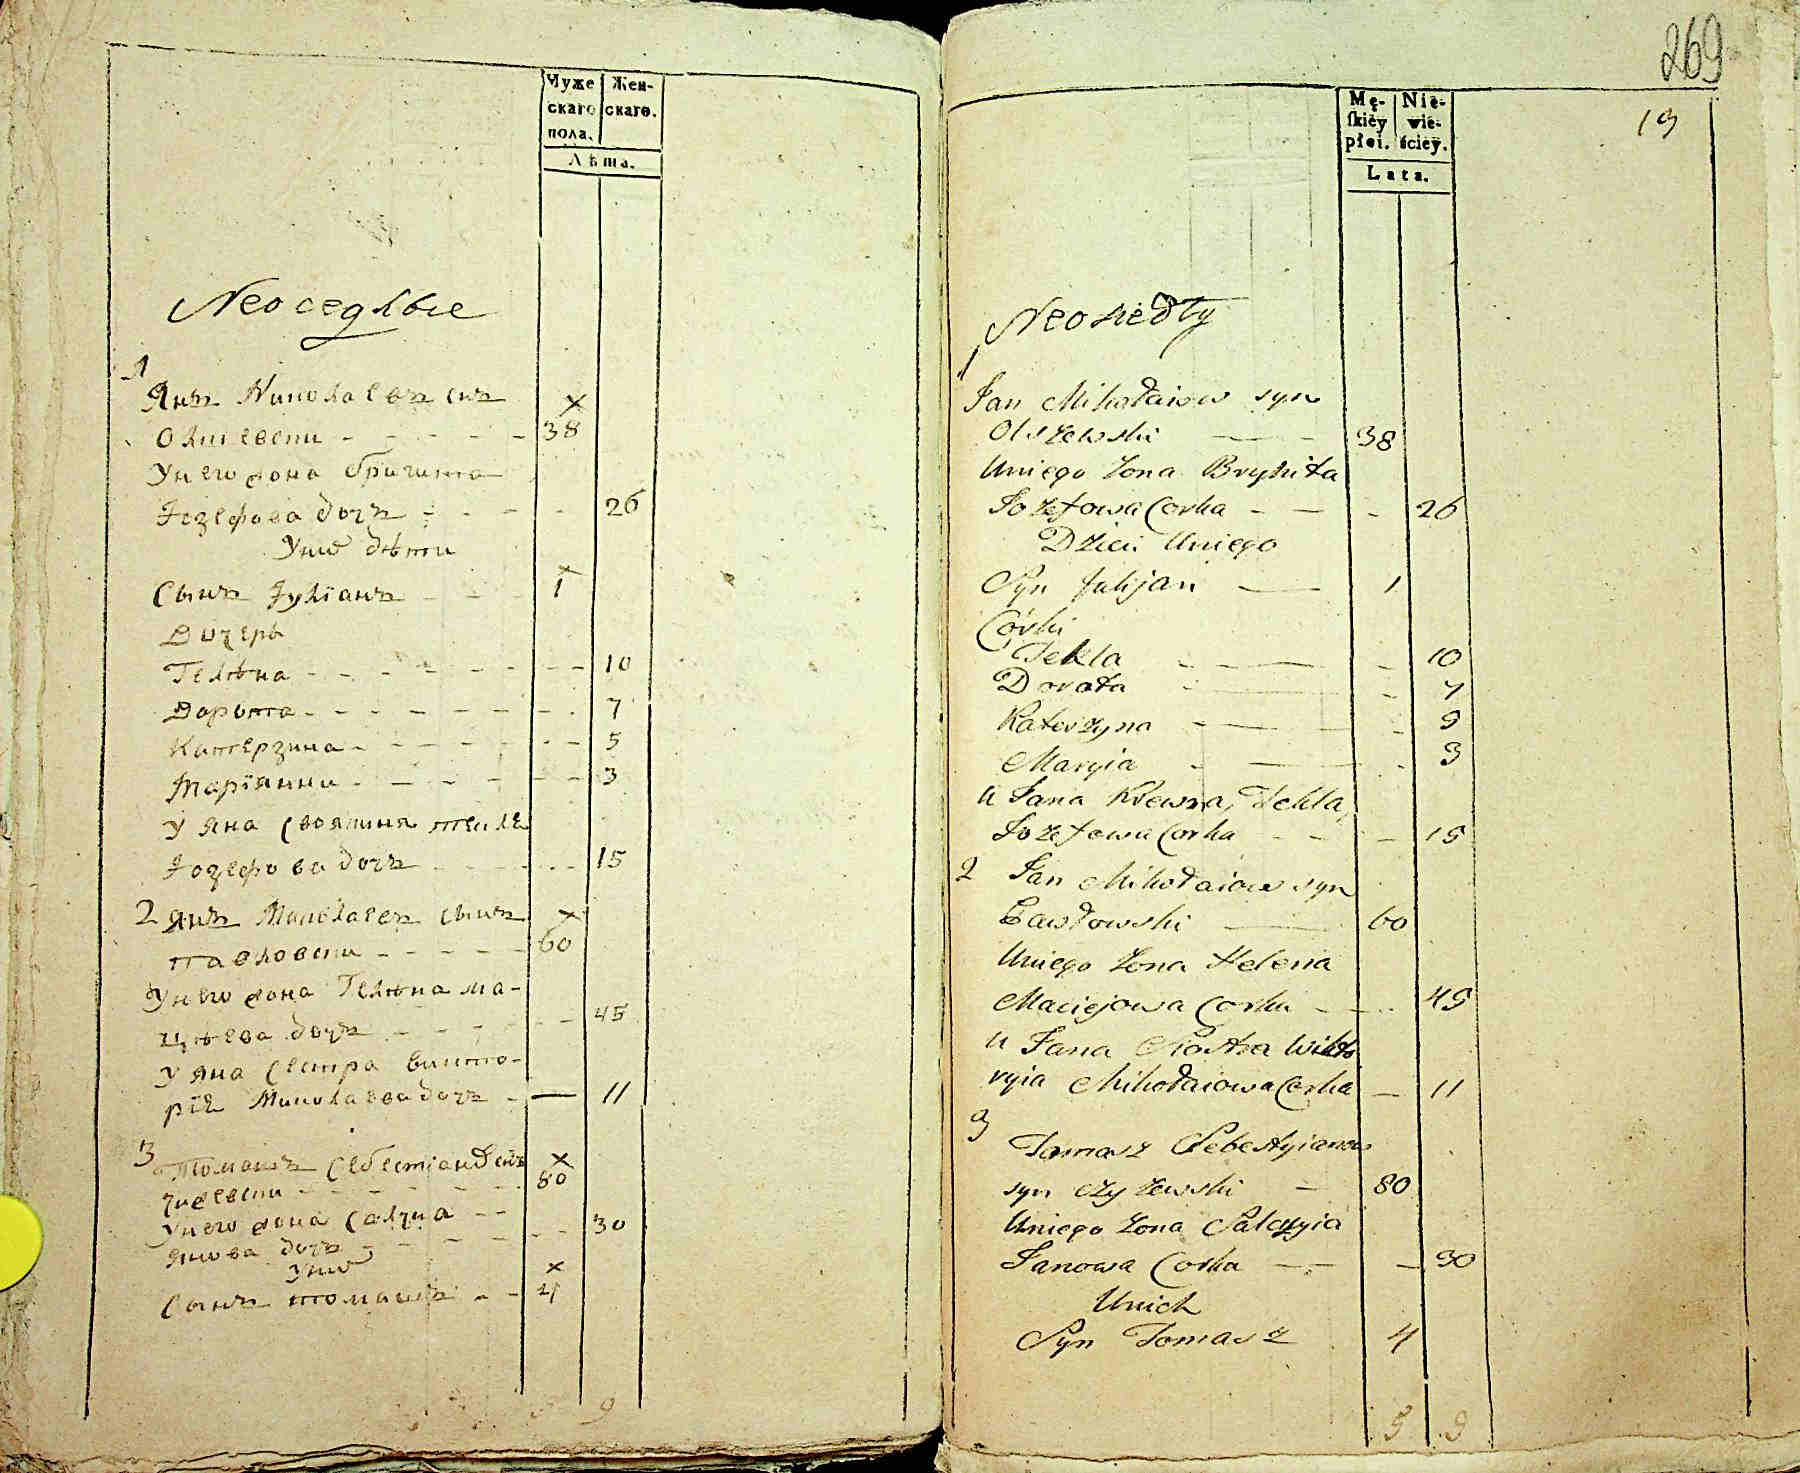 Муже
скаго
пола.
Жен-
скаго.
Лѣта.
Неоседлые
1
Янъ Николаевъ сынъ ×
Олшевски 38
У него жона Бригита
Іозефова дочъ 26
У них дѣти
×
Сынъ Іуліанъ 1
Дочеры
Гелѣна 10
Дорота 7
Катержина 5
Маріянна 3
У Яна своячиня Текле
Іозефова дочъ 15
2 Янъ Миколаевъ сынъ ×
Павловски 60
У него жона Гелѣна Ма-
цѣева дочъ 45
У Яна сестра Викто-
рія Миколаева дочъ — 11
3
Томашъ Себестіановъ ×
80
У него жона Салція
Янова дочъ 30
У них ×
Сынъ Томашъ 4
9
269
Mę-
skiéy
płci.
Nie-
wie-
ściey.
Lata.
13
Neosiedły
1
Jan Mikołaiow syn
Olszewski 38
Uniego Żona Brygita
Jozefowa Corka 26
Dzieci Uniego
Syn Julijan 1
Córki
Tekla 10
Dorota 7
Katerzyna 5
Maryia 3
U Jana Krewna, Tekla,
Jozefowa Corka 15
2 Jan Mikołaiow syn
Pawłowski 60
Uniego Żona Helena
Maciejowa Corka 45
U Jana Siostra Wikto
ryia Mikołaiowa Corka 11
3
Tomasz Sebestyianow
syn Czyżewski 80
Uniego Żona Salczyia
Janowa Corka 30
Unich
Syn Tomasz 4
5 9